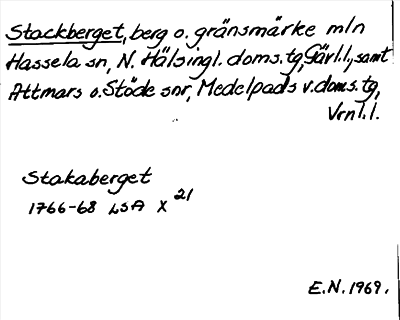 Stackberget, berg o. gränsmärke mln
Hassela sn, N. Hälsingl. doms. tg, Gävl.l., samt
Attmars o. Stöde snr, Medelpads v. doms. tg,
Vrnl. l.
Stakaberget
1766-68 LSA X 21
E.N. 1969.